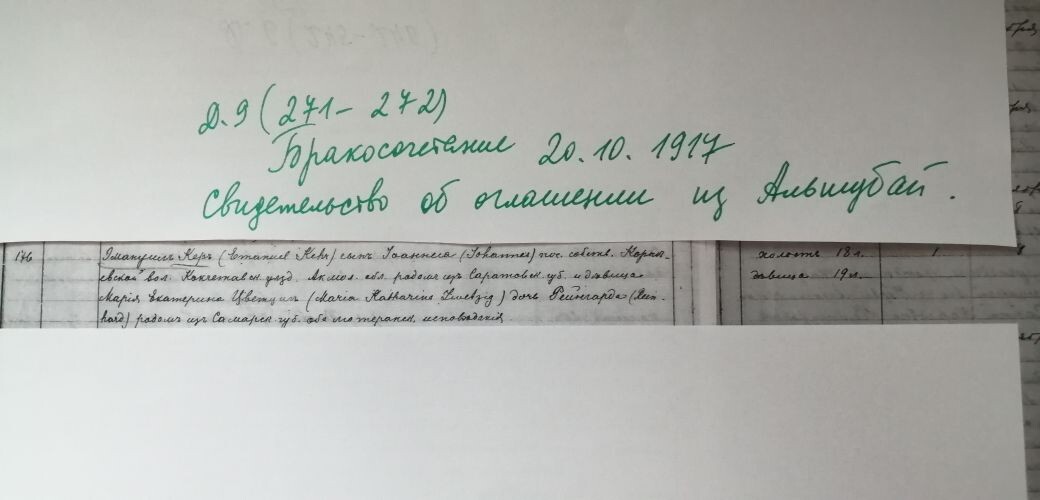 Д. 9 (271 - 272)
Бракосочетание 20.10.1917
Свидетельство об оглашении из Альшубай.
176
Эмануилъ Керъ (Emanuel Kehr) сынъ Іоаннеса (Johannes) пос. собств.
вол. Кокчетавск. уѣзд. Акмол. обл. родомъ изъ Саратовск. губ. и дѣвица
Марія Екатерина Цветцигъ (Maria Katharina Zwetzig) дочь Рейнгарда (Rein-
hard) родомъ изъ Самарск. губ. оба лютеранск. исповѣданія
холостъ 18 л. 1.
дѣвица 19 л.